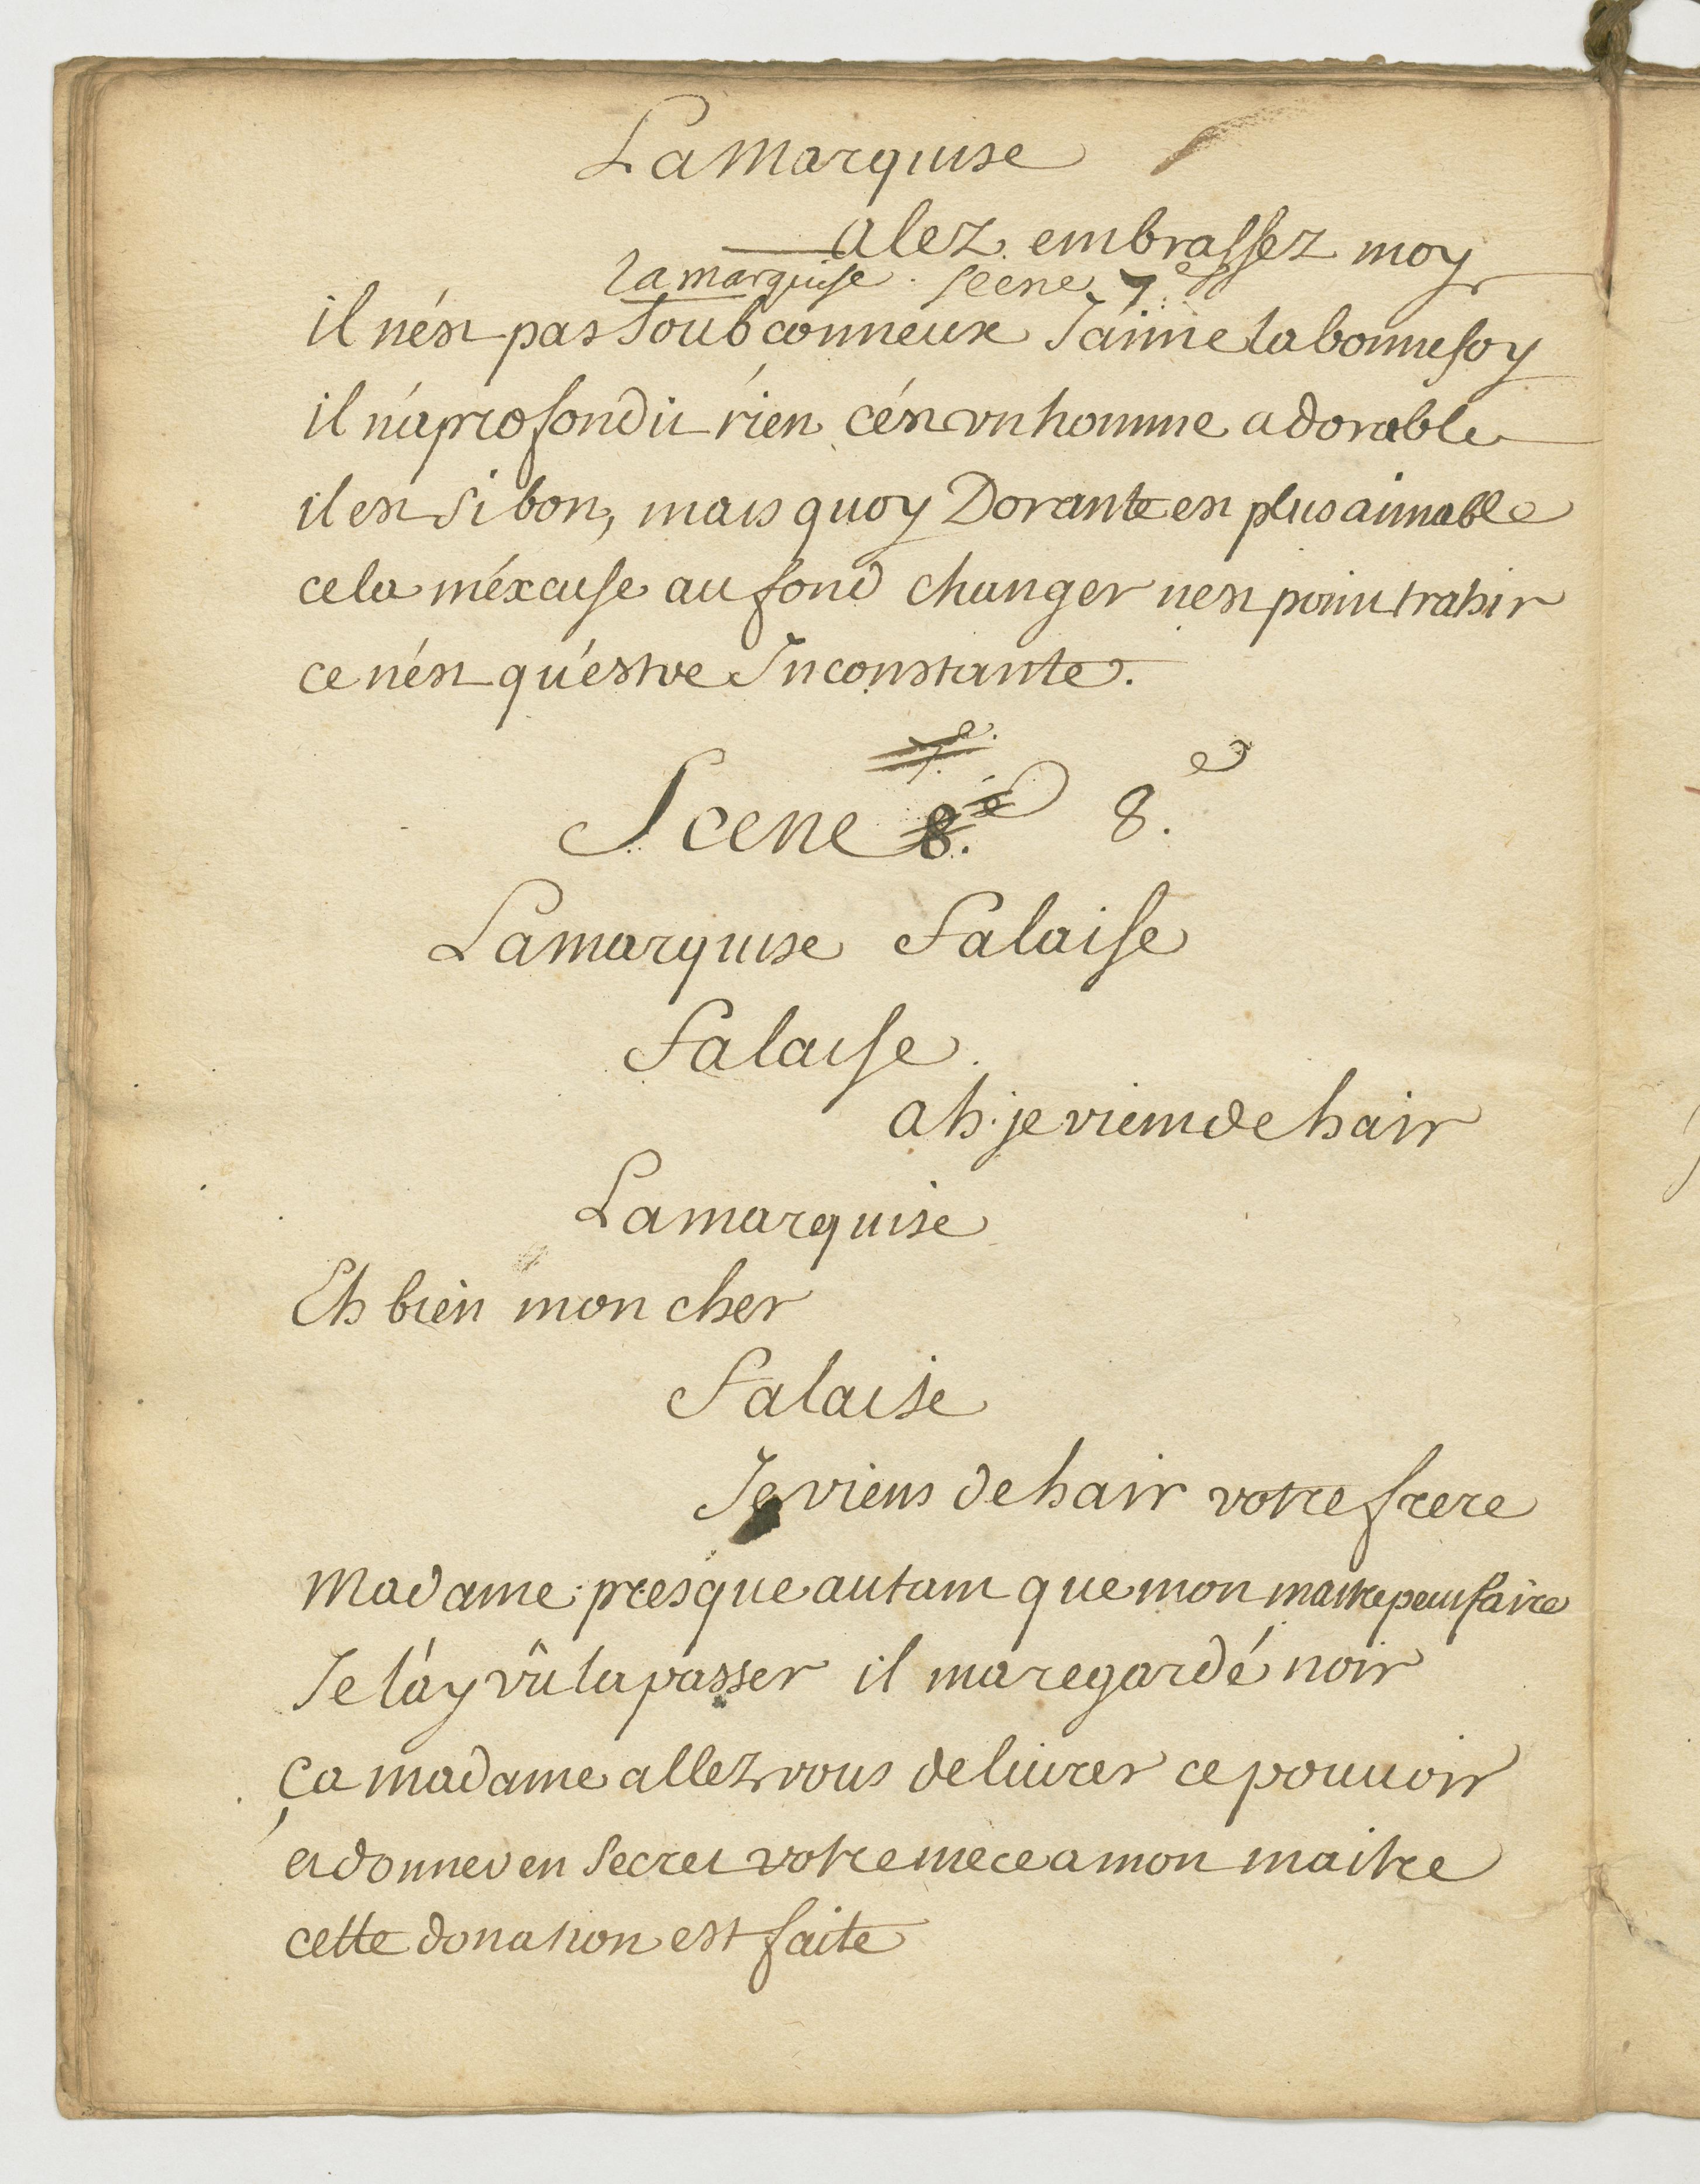 La Marquise
alez embrassez moy
la marquise. scene 7e
il n'est pas soubçonneux J'aime la bonne foy
il n'aprofondit rien c'est vn homme adorable
il est si bon, mais quoy Dorante est plus aimable
cela m'éxcuse au fond changer n'est point trahir
ce n'est qu'estre Inconstante.
7e.
Scene 8.e 8.e
La marquise Falaise
Falaise.
ah. je viens de hair
La marquise
Eh bien mon cher
Falaise
Je viens de hair votre frere
Madame presque autant que mon maitre peut faire
Je l'ay vû la passer il ma regardé noir
ça madame allez vous deliurer ce pouuoir
et donner en secret votre niece a mon maitre
cette donation est faite